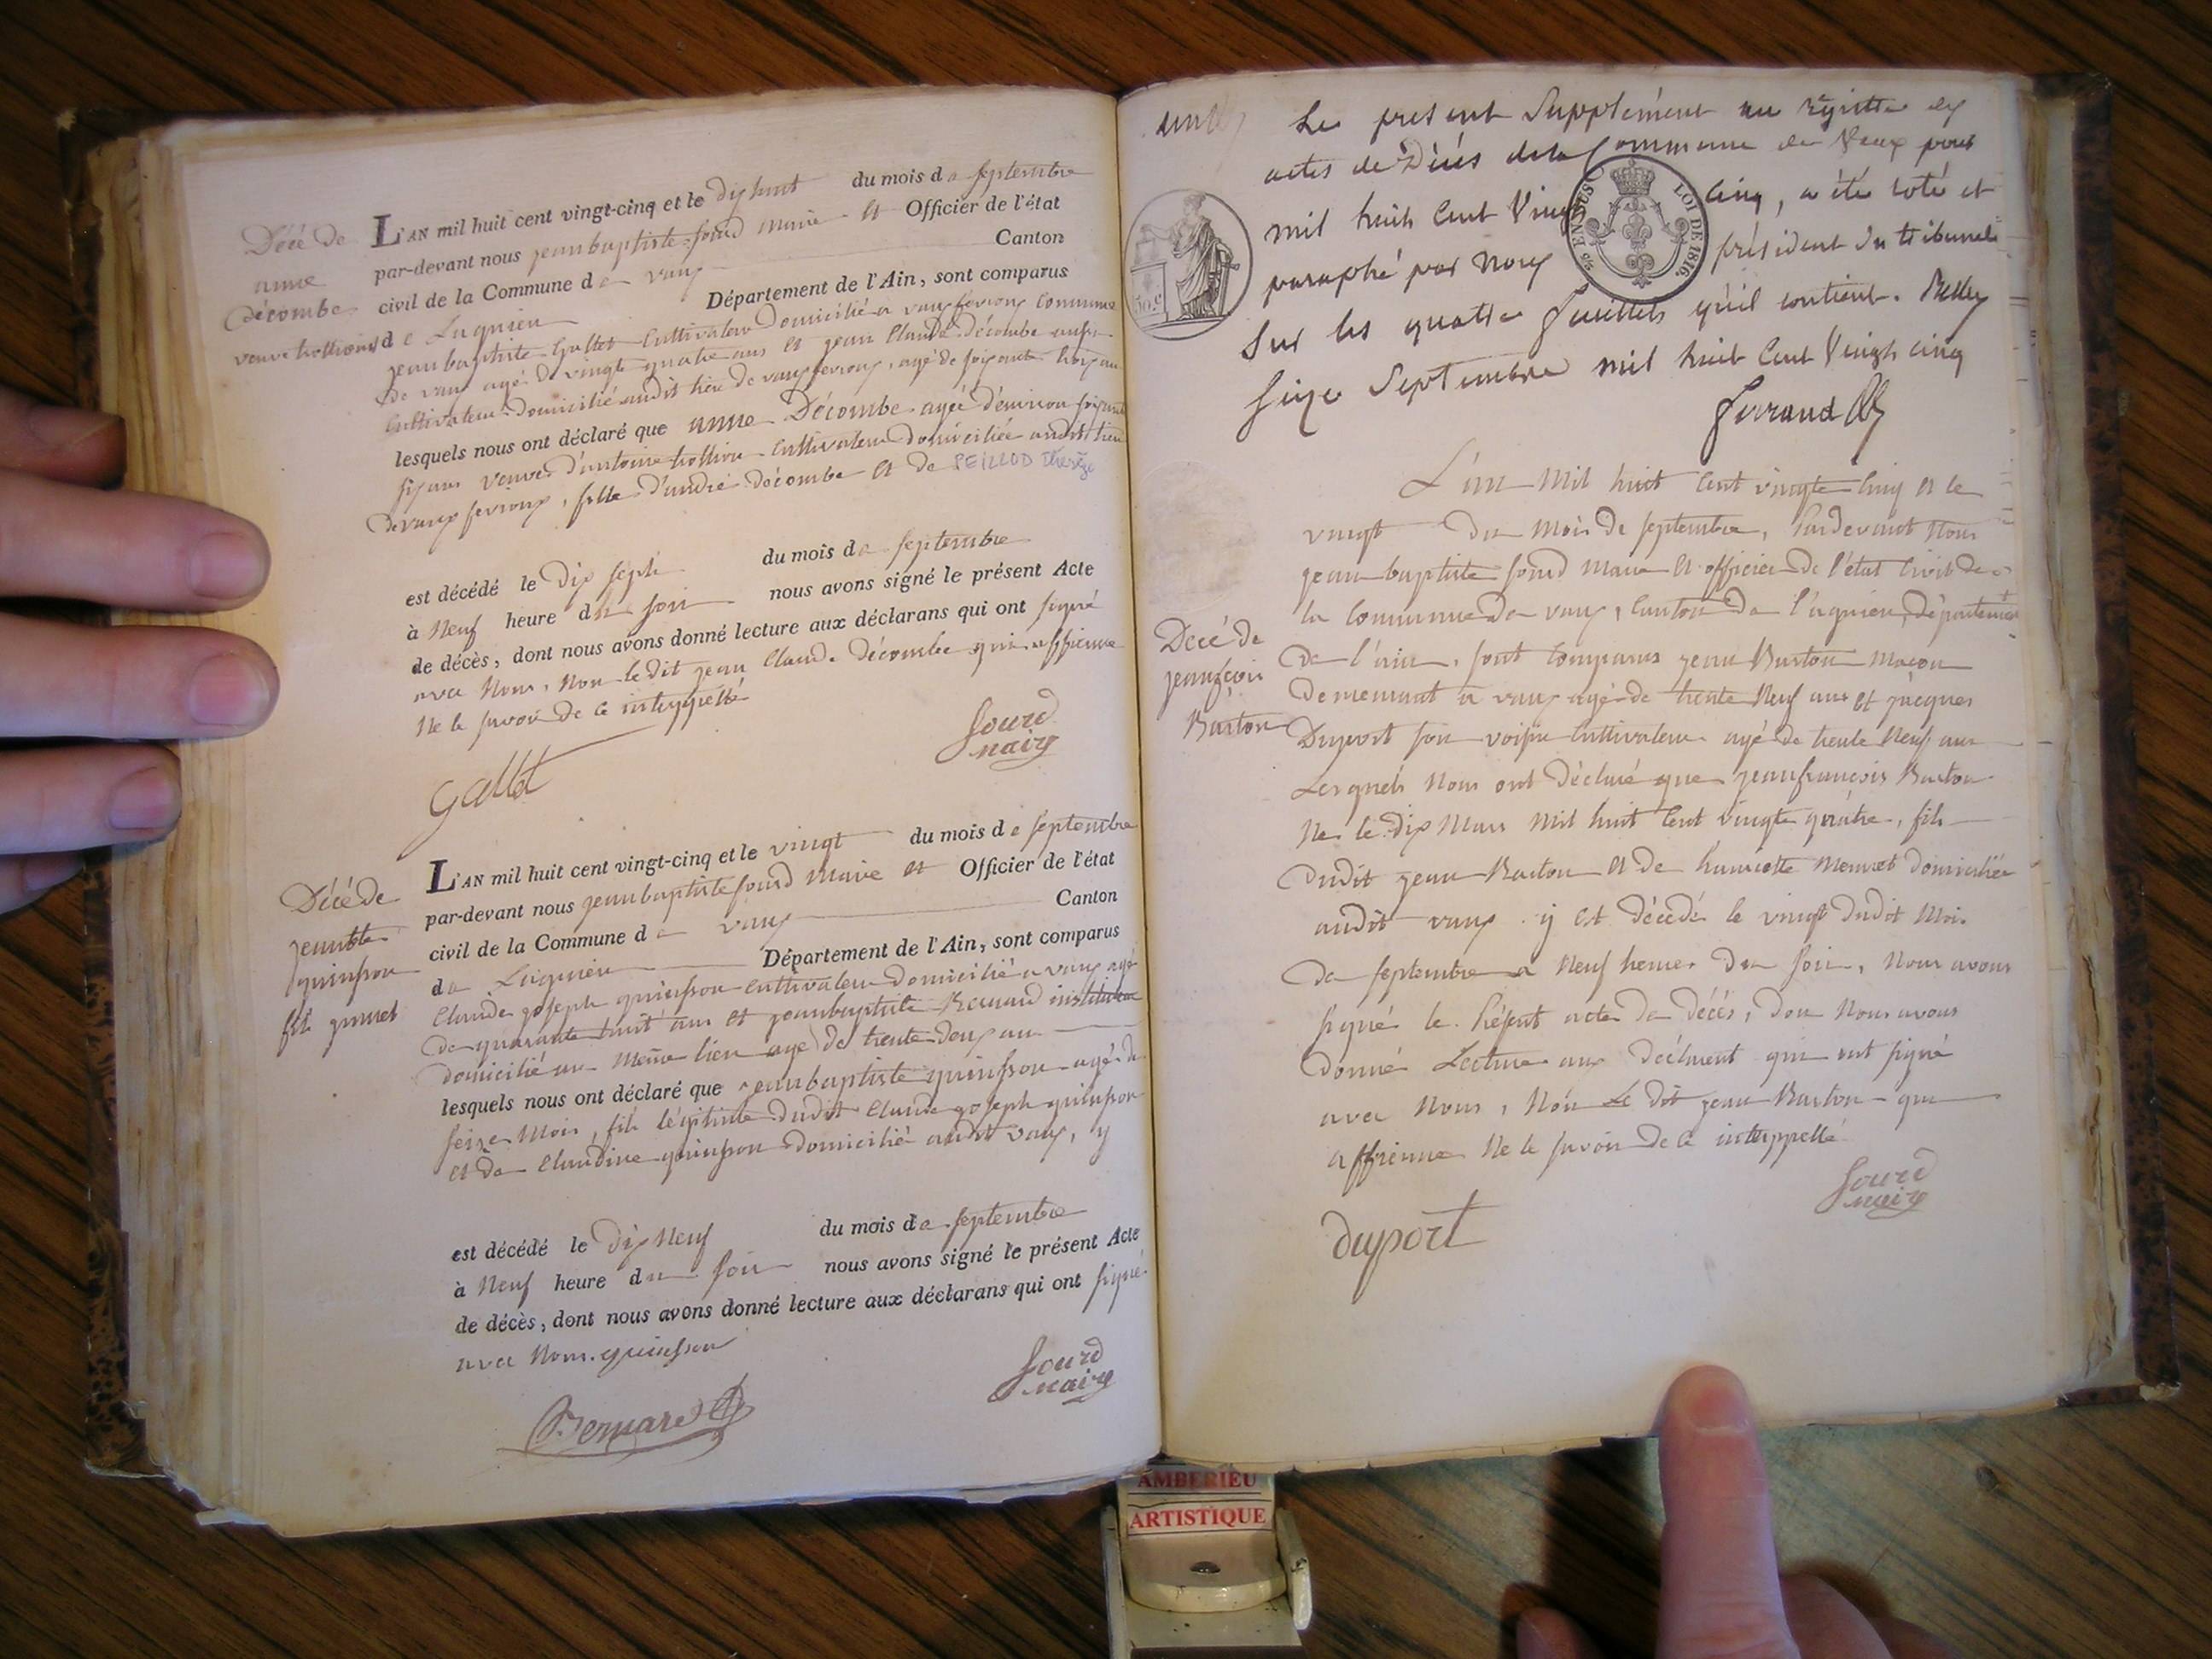 Décé de
anne
décombe
veuve trollion
L'AN mil huit cent vingt-cinq et le dix huit du mois de septembre
par-devant nous jean baptiste sourd maire et Officier de l'état
civil de la Commune de vaux Canton
de Lagnieu Département de l'Ain, sont comparus
jean baptiste Gallet Cultivateur Domicilié a vaux fevroux Commune
de vaux agé de vingt quatre ans et jean Claude Décombe aussi
Cultivateur Domicilié audit lieu de vaux fevroux, agé de soixante trois ans
lesquels nous ont déclaré que anne Décombe agée d'environ soixante
six ans veuve d'antoine trollion Cultivateur Domiciliée audit lieu
de vaux fevroux, fille d'andré décombe et de PEILLOD Thérèze
est décédé le dix sept du mois de septembre
à Neuf heure du soir nous avons signé le présent Acte
de décès, dont nous avons donné lecture aux déclarans qui ont signé
avec Nous, Non le dit jean Claude décombe qui a affirmé
Ne le savoir de ce interppellé
Gallet
Sourd
maire
Décé de
jean bte
quinson
fils
L'AN mil huit cent vingt-cinq et le vingt du mois de septembre
par-devant nous jean baptiste sourd Maire et Officier de l'état
civil de la Commune de vaux Canton
de Lagnieu Département de l'Ain, sont comparus
Claude joseph quinson Cultivateur Domicilié a vaux agé
de quarante huit ans et jean baptiste Bernard instituteur
domicilié au même lieu agé de trente deux ans
lesquels nous ont déclaré que jean baptiste quinson agé de
seize Mois, fils légitime dudit Claude joseph quinson
et de Claudine quinson domicilié audit vaux, y
est décédé le dix Neuf du mois de septembre
à Neuf heure du soir nous avons signé le présent Acte
de décès, dont nous avons donné lecture aux déclarans qui ont signé
avec Nous. quinson
Bernard
Sourd
maire
Le present Supplément au régistre des
actes de Décès de la Commune de Vaux pour
mil huit Cent Vingt Cinq, a été coté et
paraphé par Nous président du tribunal
Sur les quatre feuillets qu'il contient. Belley
Seize Septembre mil huit Cent Vingt cinq
LOI DE 1816.
50 c
Ferrand
Décé de
jean fcois
Barton
L'an Mil huit Cent vingte Cinq et le
vingt du Mois de septembre, Pardevant Nous
jean baptiste sourd Maire et officier de l'état Civil de
la Commune de vaux, Canton de Lagnieu, département
de l'ain, sont Comparus jean Barton Macon
demeurant a vaux agé de trente Neuf ans et jacques
Duport son voisin Cultivateur agé de trente Neuf ans
Lesquels Nous ont Déclaré que jean françois Barton
Né le dix Mars Mil huit Cent vingte quatre, fils
Dudit jean Barton et de domiciliés
audit vaux y est décédé le vingt dudit Mois
de septembre a Neuf heures du soir, Nous avons
signé le Présent acte de décès, dont Nous avons
donné Lecture aux Déclarent qui ont signé
avec Nous, Non Le dit jean Barton qui
affirmé Ne le savoir de ce interppellé
duport
Sourd
maire
AMBERIEU
ARTISTIQUE